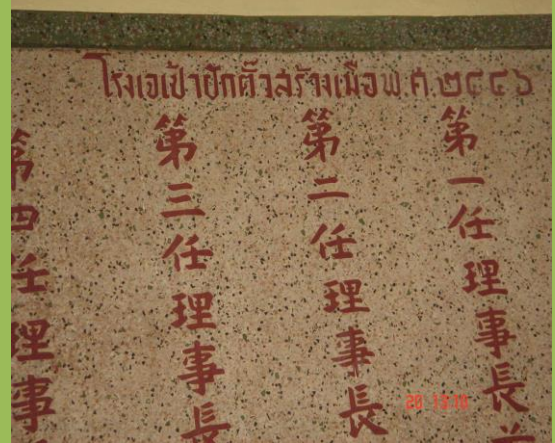 โรงเจเป้าฮักตั๊วสร้างเมื่อพ.ศ.๒๔๔๖
第一任理事長
第二任理事長
第三任理事長
第四任理事
20 13:18